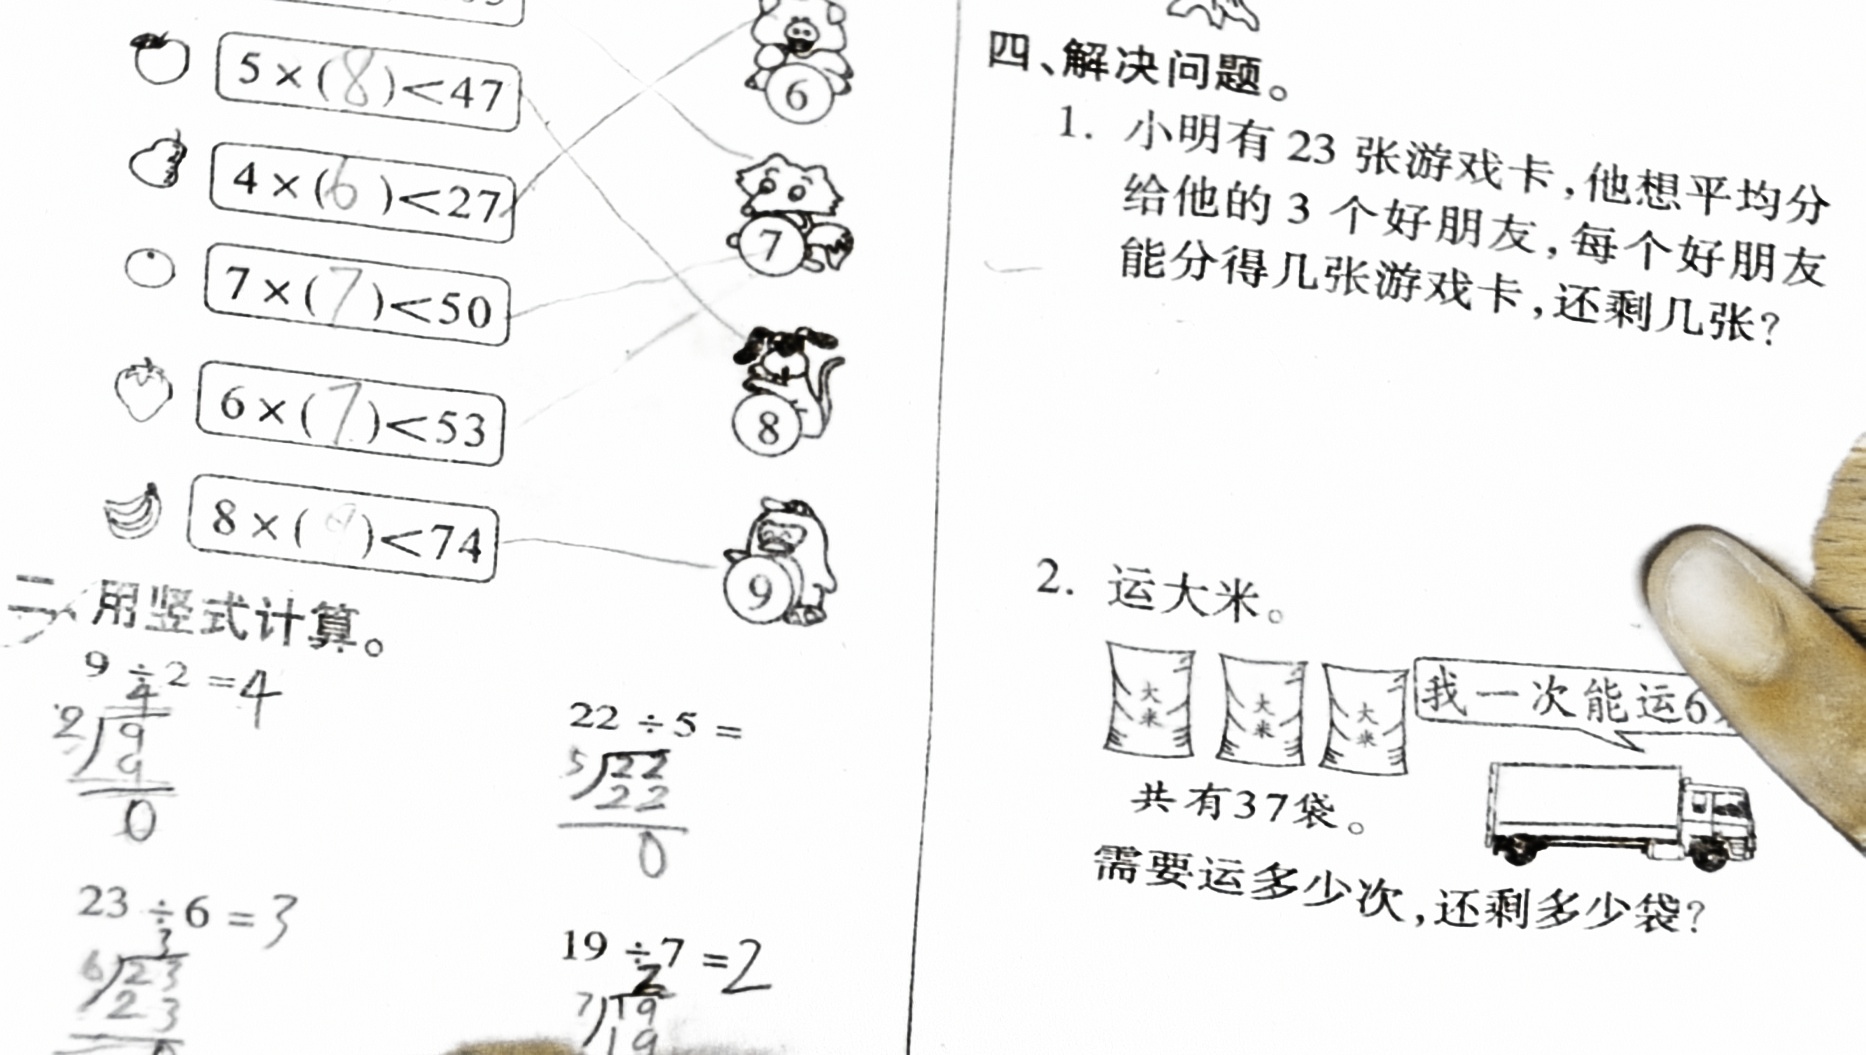 5×(8)<47
4×(6)<27
7×(7)<50
6×(7)<53
8×(9)<74
6
7
8
9
二、用竖式计算。
9÷2=4
4
2 9
9
0
22÷5=
5 22
22
0
23÷6=3
3
6 23
23
19÷7=2
2
7 19
19
四、解决问题。
1. 小明有23张游戏卡,他想平均分
给他的3个好朋友,每个好朋友
能分得几张游戏卡,还剩几张?
2. 运大米。
大米
大米
大米
我一次能运6
共有37袋。
需要运多少次,还剩多少袋?